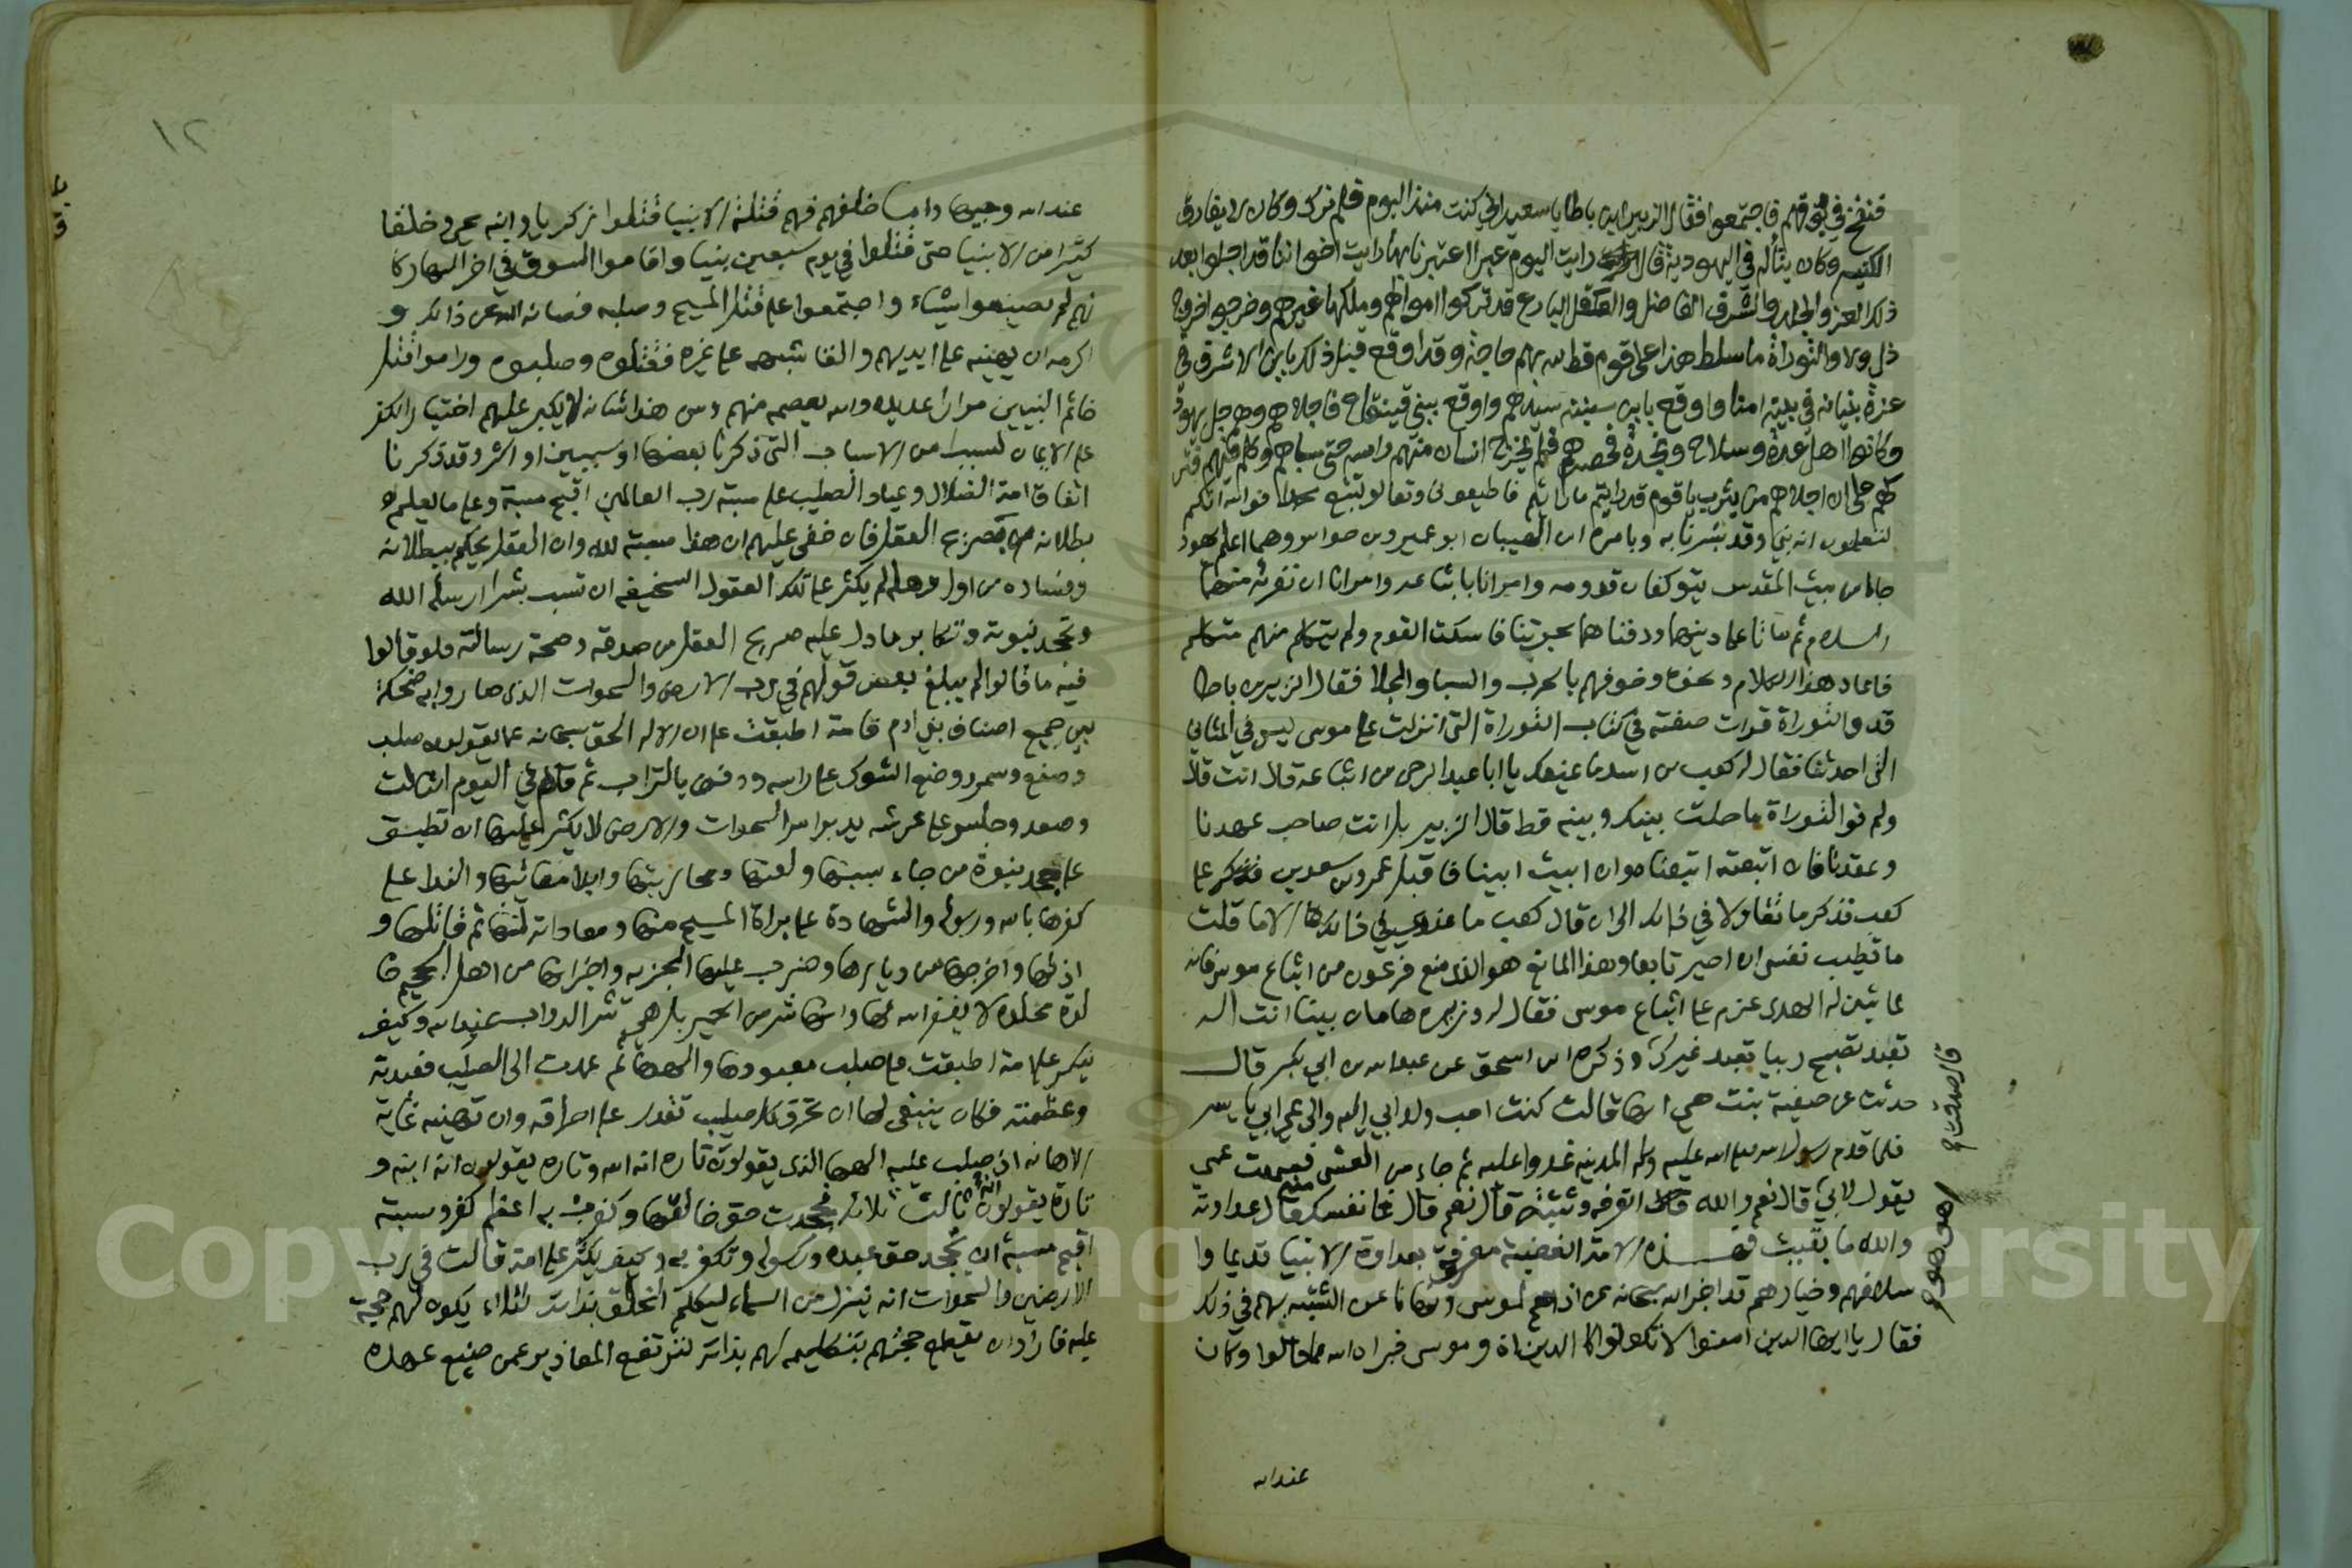 فنفخ في بوقهم فاجتمعوا فقال الزبير ابن باطا يا سعيد اين كنت منذ اليوم فلم نرك وكان لا يفارق
الكنيسه وكان يتأله في اليهودية قال رايت اليوم عبرا اعتبرنا بها رايت اخواننا قد اجلوا بعد
ذلك العز والجلد والشرف الفاضل والعقل البارع قد تركوا اموالهم وملكها غيرهم وخرجوا خروج
ذل ولا والتوراة ما سلط هذا على قوم قط لله بهم حاجة وقد اوقع قبل ذلك بابن الاشرف في
عزة بنيانه في بيته امنا واوقع بابن سنينه سيدهم واوقع ببني قينقاع فاجلاهم وهم جل يهود
وكانوا اهل عدة وسلاح ونجدة فحصرهم فلم يخرج انسان منهم راسه حتى سباهم وكلم فيهم فتر
كهم على ان اجلاهم من يثرب يا قوم قد رايتم ما رايتم فاطيعوني وتعالوا نتبع محمدا فوالله انكم
لتعلمون انه نبي وقد بشرنا به وبامره ابن الهيبان ابو عمير وبن حواس وهما اعلم يهود
جاءا من بيت المقدس يتوكفان قدومه وامرانا باتباعه وامرانا ان نقرئه منهما
السلام ثم ماتا على دينهما ودفناهما بحرتنا فاسكت القوم ولم يتكلم منهم متكلم
فاعاد هذا الكلام ونحوه وخوفهم بالحرب والسبا والجلا فقال الزبير بن باطا
قد والتوراة قرات صفته في كتاب التوراة التي انزلت على موسى ليس في المثاني
التي احدثنا فقال له كعب بن اسد ما يمنعك يا ابا عبد الرحمن من اتباعه قال انت قال
ولم فوالتوراة ما حلت بينك وبينه قط قال الزبير بل انت صاحب عهدنا
وعقدنا فان اتبعته اتبعناه وان ابيت ابينا فاقبل عمرو بن سعدى على
كعب فذكر ما تقاولا في ذلك الى ان قال كعب ما عندي في ذلك الا ما قلت
ما تطيب نفسي ان اصير تابعا وهذا المانع هو الذي منع فرعون من اتباع موسى فانه
لما تبين له الهدى عزم على اتباع موسى فقال له وزيره هامان بينا انت اله
تعبد تصبح ربيا تعبد غيرك وذكر ابن اسحق عن عبد الله بن ابي بكر قال
حدثت عن صفية بنت حيي انها قالت كنت احب ولد ابي اليه والى عمي ابي ياسر
فلما قدم رسول الله صلى الله عليه وسلم المدينه غدوا عليه ثم جاءا من العشي فسمعت عمي
يقول لابي قال نعم والله قال اتعرفه وتثبته قال نعم قال فما نفسك منه قال عداوته
والله ما بقيت فهذه الامة الغضبية معروفة بعداوة الانبيا قديما وا
سلافهم وخيارهم قد اخبر الله سبحانه عن اذاهم لموسى ونهانا عن التشبه بهم في ذلك
فقال يا ايها الذين امنوا لا تكونوا كالذين اذوا موسى فبراه الله مما قالوا وكان
عند الله
اهو هو
عند الله وجيها واما خلفهم فهم قتلة الانبيا قتلوا زكريا وابنه يحيى وخلقا
كثيرا من الانبيا حتى قتلوا في يوم سبعين نبيا واقاموا السوق في اخر النهار كا
نهم لم يصنعوا شيئا واجتمعوا على قتل المسيح وصلبه فصانه الله عن ذالك و
اكرمه ان يهينه على ايديهم والقا شبهه على غيره فقتلوه وصلبوه وراموا قتل
خاتم النبيين مرارا عديده والله يعصمه منهم ومن هذا شانه لا يكبر عليهم اختيار الكفر
على الايمان لسبب من الاسباب التي ذكرنا بعضها او سببين او اكثر وقد ذكرنا
اتفاق امة الضلال وعباد الصليب على مسبة رب العالمين اقبح مسبة وعلى ما يعلم
بطلانه بصريح العقل فان خفي عليهم ان هذا مسبة لله وان العقل يحكم ببطلانه
وفساده من اول وهله لم يكثر على تلك العقول السخيفه ان تسب بشرا ارسله الله
وتجحد نبوته وتكابر ما دل عليه صريح العقل من صدقه وصحة رسالته فلو قالوا
فيه ما قالوا لم يبلغ بعض قولهم في رب الارض والسموات الذي صاروا به ضحكة
بين جميع اصناف بني ادم فامة اطبقت على ان الاله الحق سبحانه عما يقولون صلب
وصفع وسمر ووضع الشوك على راسه ودفن بالتراب ثم قام في اليوم الثالث
وصعد وجلس على عرشه يدبر امر السموات والارض لا يكثر عليها ان تطبق
على جحد نبوة من جاء بسبها ولعنها ومحاربتها وابدا معائبها والندا على
كفرها بالله ورسوله والشهادة على براة المسيح منها ومعاداته لها ثم قاتلها و
اذلها واخرجها من ديارها وضرب عليها الجزيه واخبر انها من اهل الجحيم خا
لدة مخلدة لا يغفر الله لها وانها شر من الحمير بل هي شر الدواب عند الله وكيف
ينكر على امة اطبقت على صلب معبودها والهها ثم عمدت الى الصليب فعبدته
وعظمته فكان ينبغي لها ان تحرق كل صليب تقدر على احراقه وان تهينه غاية
الاهانه اذ صلب عليه الهها الذي يقولون تاره انه الله وتاره يقولون انه ابنه و
تارة يقولون انه ثالث ثلاثه فجحدت حق خالقها وكفرت به اعظم كفر وسبته
اقبح مسبة ان تجحد حق عبده ورسوله وتكفر به وكيف يكثر على امة قالت في رب
الارضين والسموات انه نزل من السماء ليكلم الخلق بذاته لئلا يكون لهم حجة
عليه فاراد ان يقطع حجتهم بتكليمه لهم بذاته لترتفع المعاذير عمن ضيع عهده
١٢